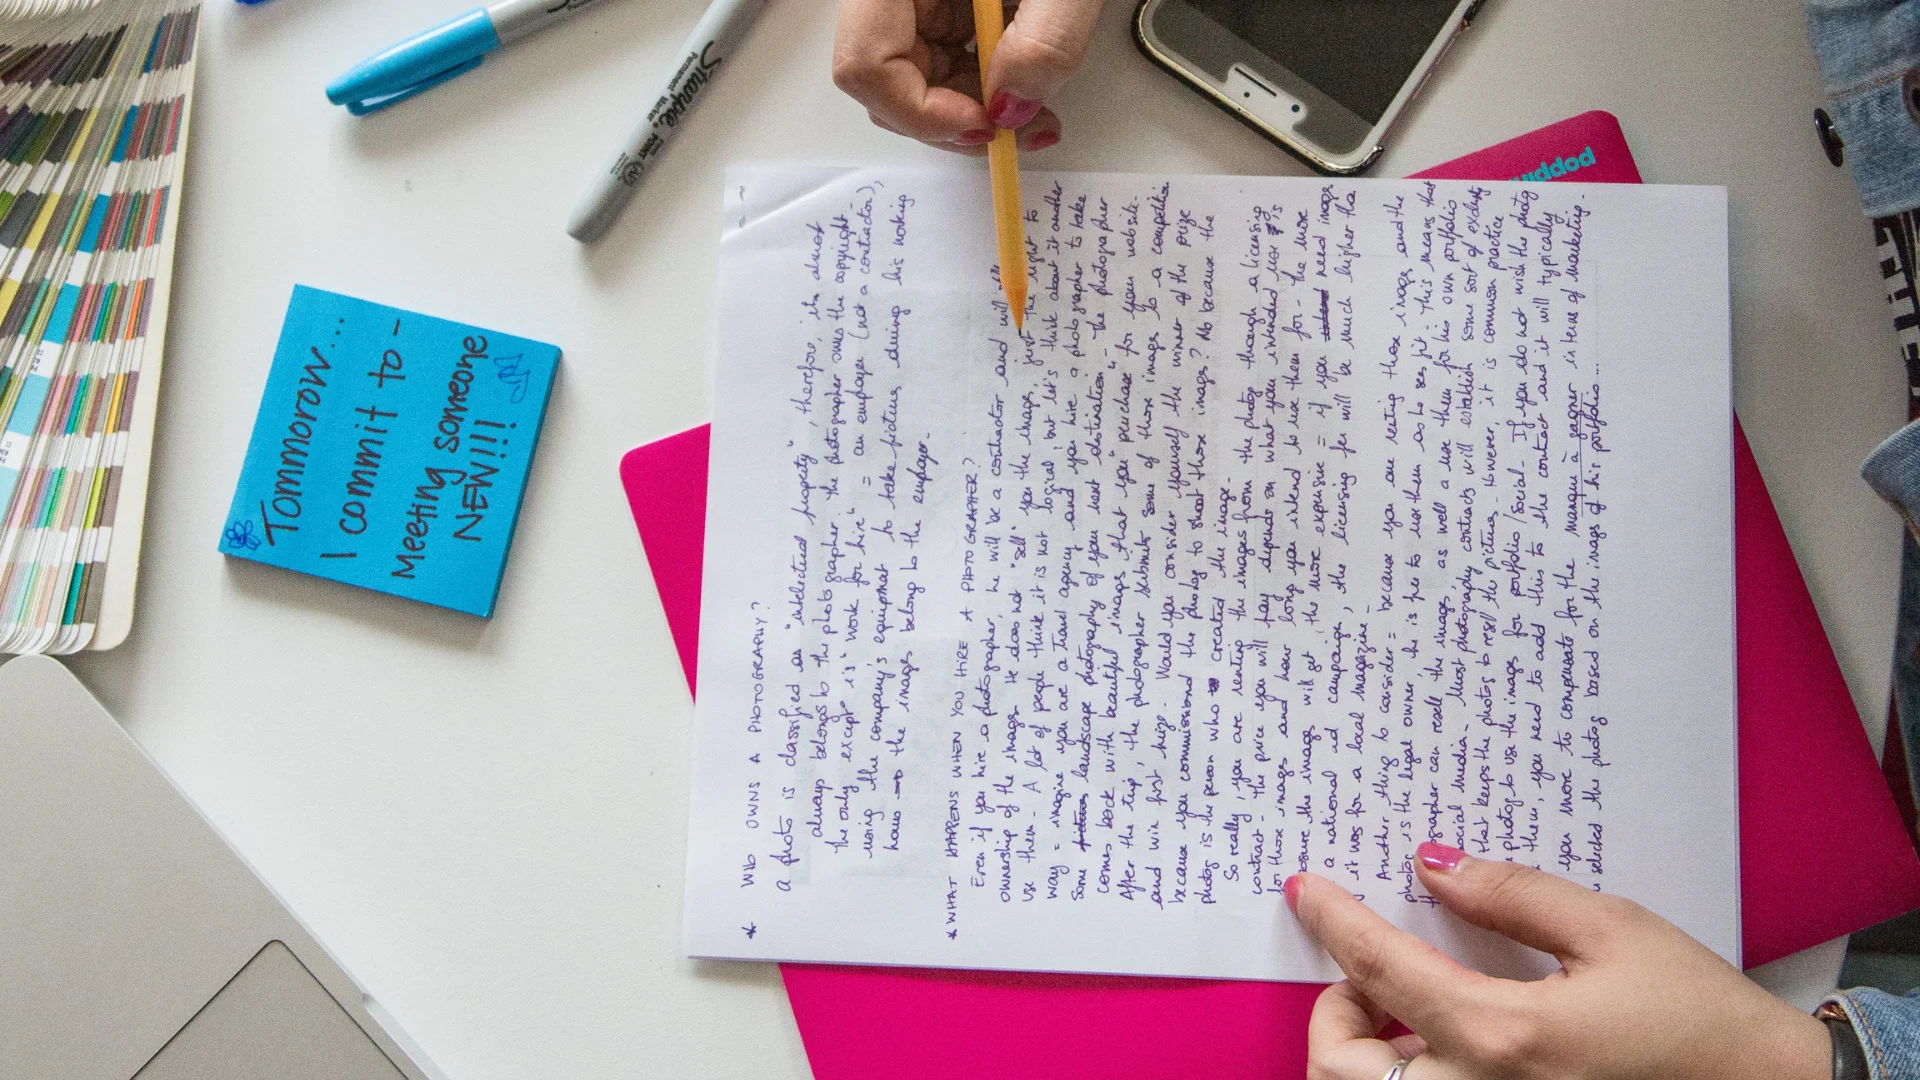 Tommorow...
I commit to -
Meeting someone
NEW!!!
Sharpie
Permanent Marker
POINT
poppin
* WHO OWNS A PHOTOGRAPHY?
A photo is classified as "intellectual property", therefore, it's almost
always belongs to the photographer. The photographer owns the copyright -
the only except° is "work for hire" = an employee (not a contractor),
using the company's equipment to take pictures during his working
hours → the images belong to the employer.
* WHAT HAPPENS WHEN YOU HIRE A PHOTOGRAPHER?
Even if you hire a photographer, he will be a contractor and will
ownership of the images. He does not "sell" you the image, just the right to
use them. A lot of people think it is not logical, but let's think about it another
way = imagine you are a travel agency and you hire a photographer to take
some landscape photography of your next destination - the photographer
comes back with beautiful images that you "purchase" for your website.
After the trip, the photographer submits some of those images to a competition
and win first prize. Would you consider yourself the winner of the prize
because you commissioned the photog to shoot those images? No because the
photog is the person who created the image.
So really, you are renting the images from the photog through a licensing
contract - the price you will pay depends on what you intend use is
for those images and how long you intend to use them for - the more
exposure the images will get, the more expensive = if you need images
a national ad campaign, the licensing fee will be much higher tha
it was for a local magazine -
Another thing to consider = because you are renting those images and the
photog is the legal owner, he is free to use them as he sees fit - This means that
photographer can resell the images, as well a use them for his own portfolio
social media - Most photography contracts will establish some sort of
that keeps the photog to resell the pictures. However, it is common practice
photog to use the images for portfolio/social. If you do not wish the photog
them, you need to add this to the contract and it will typically
you more to compensate for the manque à gagner in terms of marketing.
selected the photog based on the images of his portfolio...